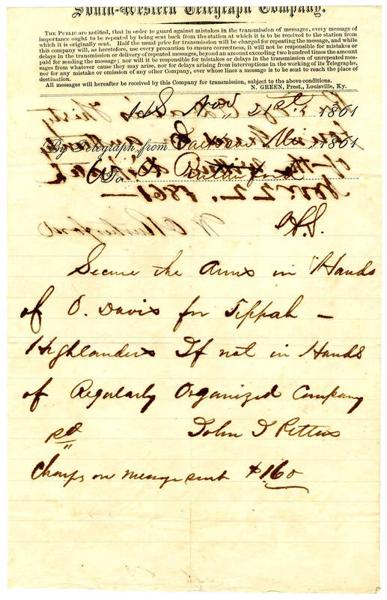 South-Western Telegraph Company.
THE PUBLIC are notified, that in order to guard against mistakes in the transmission of messages, every message of
importance ought to be repeated by being sent back from the station at which it is to be received to the station from
which it is originally sent. Half the usual price for transmission will be charged for repeating the message, and while
this company will, as heretofore, use every precaution to ensure correctness, it will not be responsible for mistakes or
delays in the transmission or delivery of repeated messages, beyond an amount exceeding two hundred times the amount
paid for sending the message; nor will it be responsible for mistakes or delays in the transmission of unrepeated mes-
sages from whatever cause they may arise, nor for delays arising from interruptions in the working of its Telegraphs,
nor for any mistake or omission of any other Company, over whose lines a message is to be sent to reach the place of
destination.
All messages hereafter received by this Company for transmission, subject to the above conditions.
N. GREEN, Prest., Louisville, Ky.
H.S. Nov 21st 1861
By Telegraph from Jackson Miss 1861
To
Nov. 22. 1861
H.S.
Secure the Arms in Hands
of O. Davis for Tippah -
Highlanders If not in Hands
of Regularly Organized Company
pd John J Pettus
Charges on message sent $1.60